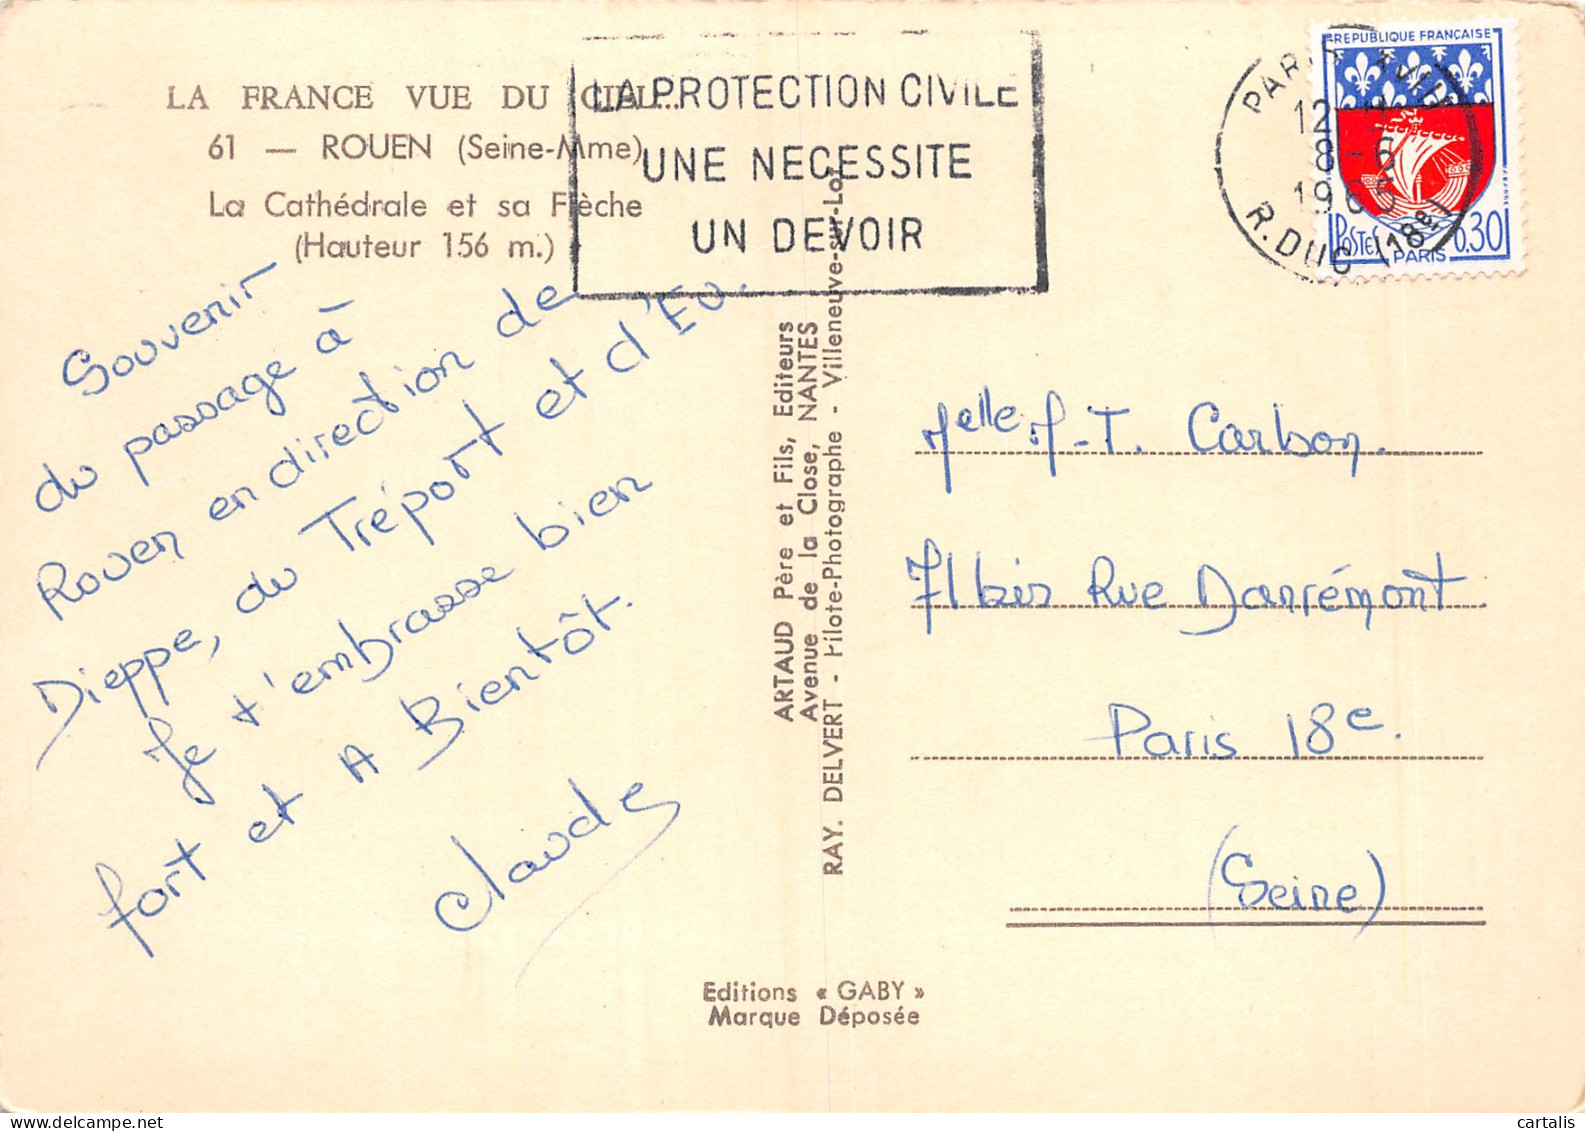 LA FRANCE VUE DU CIEL...
61 — ROUEN (Seine-Mme)
La Cathédrale et sa Flèche
(Hauteur 156 m.)
LA PROTECTION CIVILE
UNE NECESSITE
UN DEVOIR
PARIS XVIII
12 H
8 - 6
1965
R. DUC (18e)
REPUBLIQUE FRANÇAISE
POSTES 0,30
PARIS
Souvenir
du passage à
Rouen en direction de
Dieppe, du Tréport et d'Eu.
Je t'embrasse bien
fort et A Bientôt.
Claude
ARTAUD Père et Fils, Editeurs
Avenue de la Close, NANTES
RAY. DELVERT - Pilote-Photographe - Villeneuve-sur-Lot
Melle M-T. Carbon.
71 bis Rue Danrémont
Paris 18e.
(Seine)
Editions « GABY »
Marque Déposée
cartalis